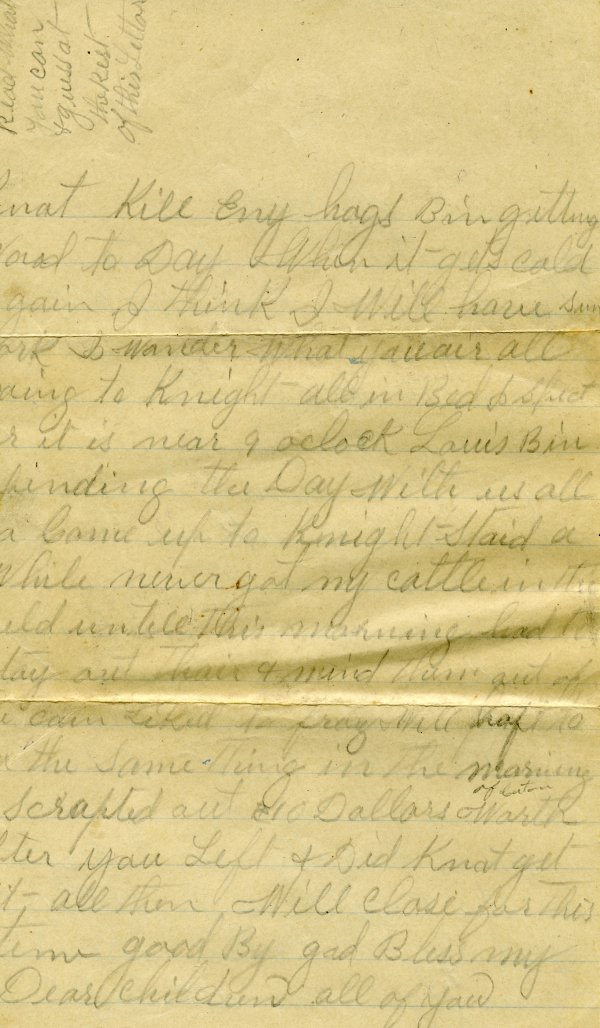 Read What
You can
& guess at
the Rest
of this Letter
Knat Kill Eny hogs Bin getting
Wood to Day & When it gets cold
again I think I Will have sum
ork I Wonder What you air all
oing to Knight all in Bed I Spect
r it is near 9 oclock Louis Bin
pending the Day With us all
Come up to Knight Staid a
While never got my cattle in the
eld untill this morning had to
tay out thair & mind them out of
corn Liked to froze Will haft to
the Same thing in the morning
Scrapted out $10 Dollars Worth
of coton
fter you Left & Did Knat get
it all then Will close for this
time good By god Bless my
Dear Children all of you